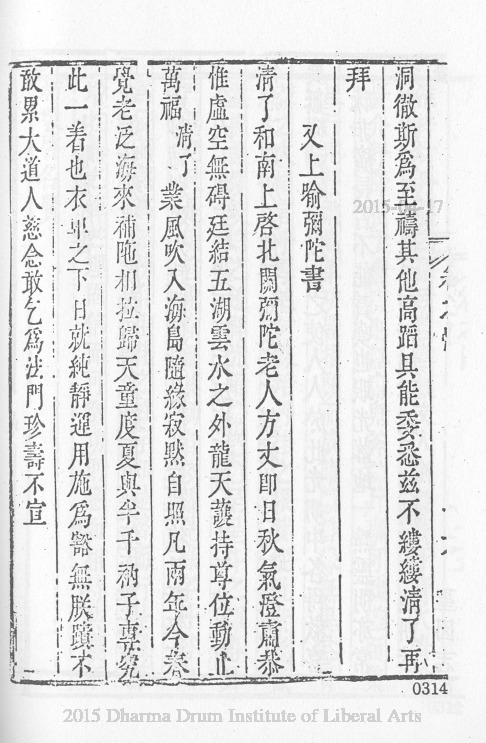 洞徹斯爲至禱其他高蹈具能委悉茲不縷縷清了再
拜
又上喻彌陀書
清了和南上啓北關彌陀老人方丈即日秋氣澄肅恭
惟虛空無碍廷結五湖雲水之外龍天護持尊位動止
萬福清了業風吹入海島隨緣寂默自照凡兩年今春
覺老泛海來補陁相拉歸天童度夏與半千衲子專究
此一着也衣單之下日就純靜運用施爲豁無朕蹟不
敢累大道人慈念敢乞爲法門珍壽不宣
2015-
-17
0314
2015 Dharma Drum Institute of Liberal Arts